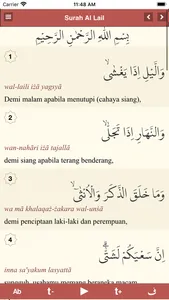 Carrier 11:48 AM
Surah Al Lail
بِسْمِ اللّٰهِ الرَّحْمٰنِ الرَّحِيْمِ
1
وَالَّيْلِ اِذَا يَغْشٰىۙ
wal-laili iżā yagsyā
Demi malam apabila menutupi (cahaya siang),
2
وَالنَّهَارِ اِذَا تَجَلّٰىۙ
wan-nahāri iżā tajallā
demi siang apabila terang benderang,
3
وَمَا خَلَقَ الذَّكَرَ وَالْاُنْثٰىٓۙ
wa mā khalaqaż-żakara wal-unṡā
demi penciptaan laki-laki dan perempuan,
4
اِنَّ سَعْيَكُمْ لَشَتّٰىۗ
inna sa'yakum lasyattā
Ab t- t+ ف